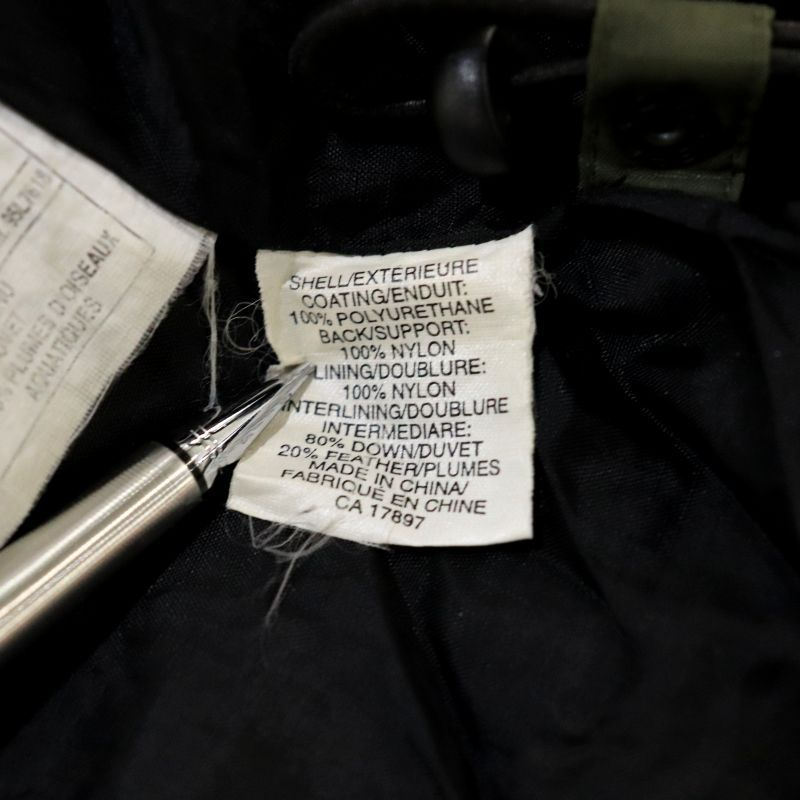 SHELL/EXTERIEURE
COATING/ENDUIT:
100% POLYURETHANE
BACK/SUPPORT:
100% NYLON
LINING/DOUBLURE:
100% NYLON
INTERLINING/DOUBLURE
INTERMEDIARE:
80% DOWN/DUVET
20% FEATHER/PLUMES
MADE IN CHINA/
FABRIQUÉ EN CHINE
CA 17897
PLUMES D'OISEAUX
AQUATIQUES